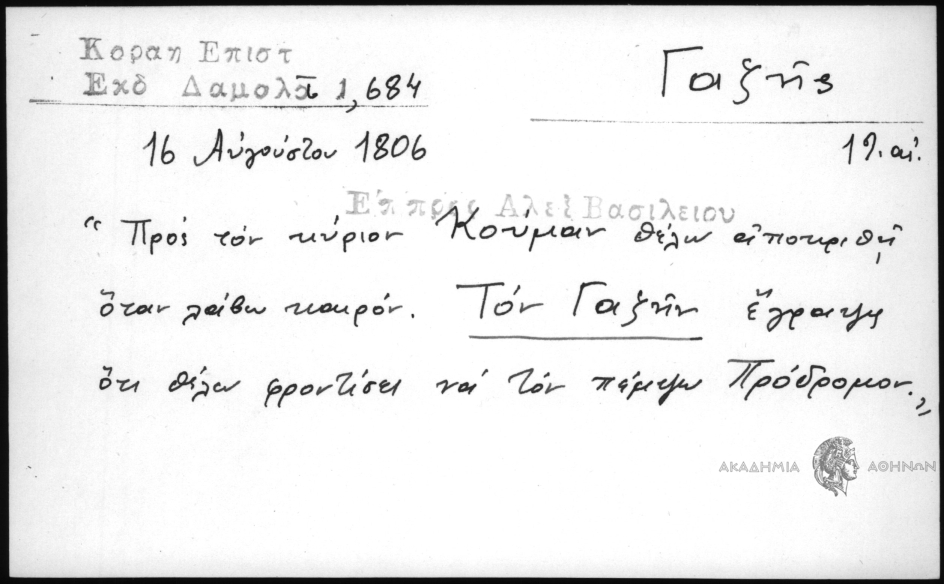 Κοραη Επιστ
Εκδ Δαμαλᾶ 1,684
Γαζῆς
16 Αὐγούστου 1806
19. αἰ.
Επ προς Αλεξ Βασιλειου
“ Πρὸς τὸν κύριον Κούμαν θέλω ἀποκριθῆ
ὅταν λάβω καιρόν. Τὸν Γαζῆν ἔγραψα
ὅτι θέλω φροντίσει νὰ τὸν πέμψω Πρόδρομον.„
ΑΚΑΔΗΜΙΑ ΑΘΗΝΩΝ